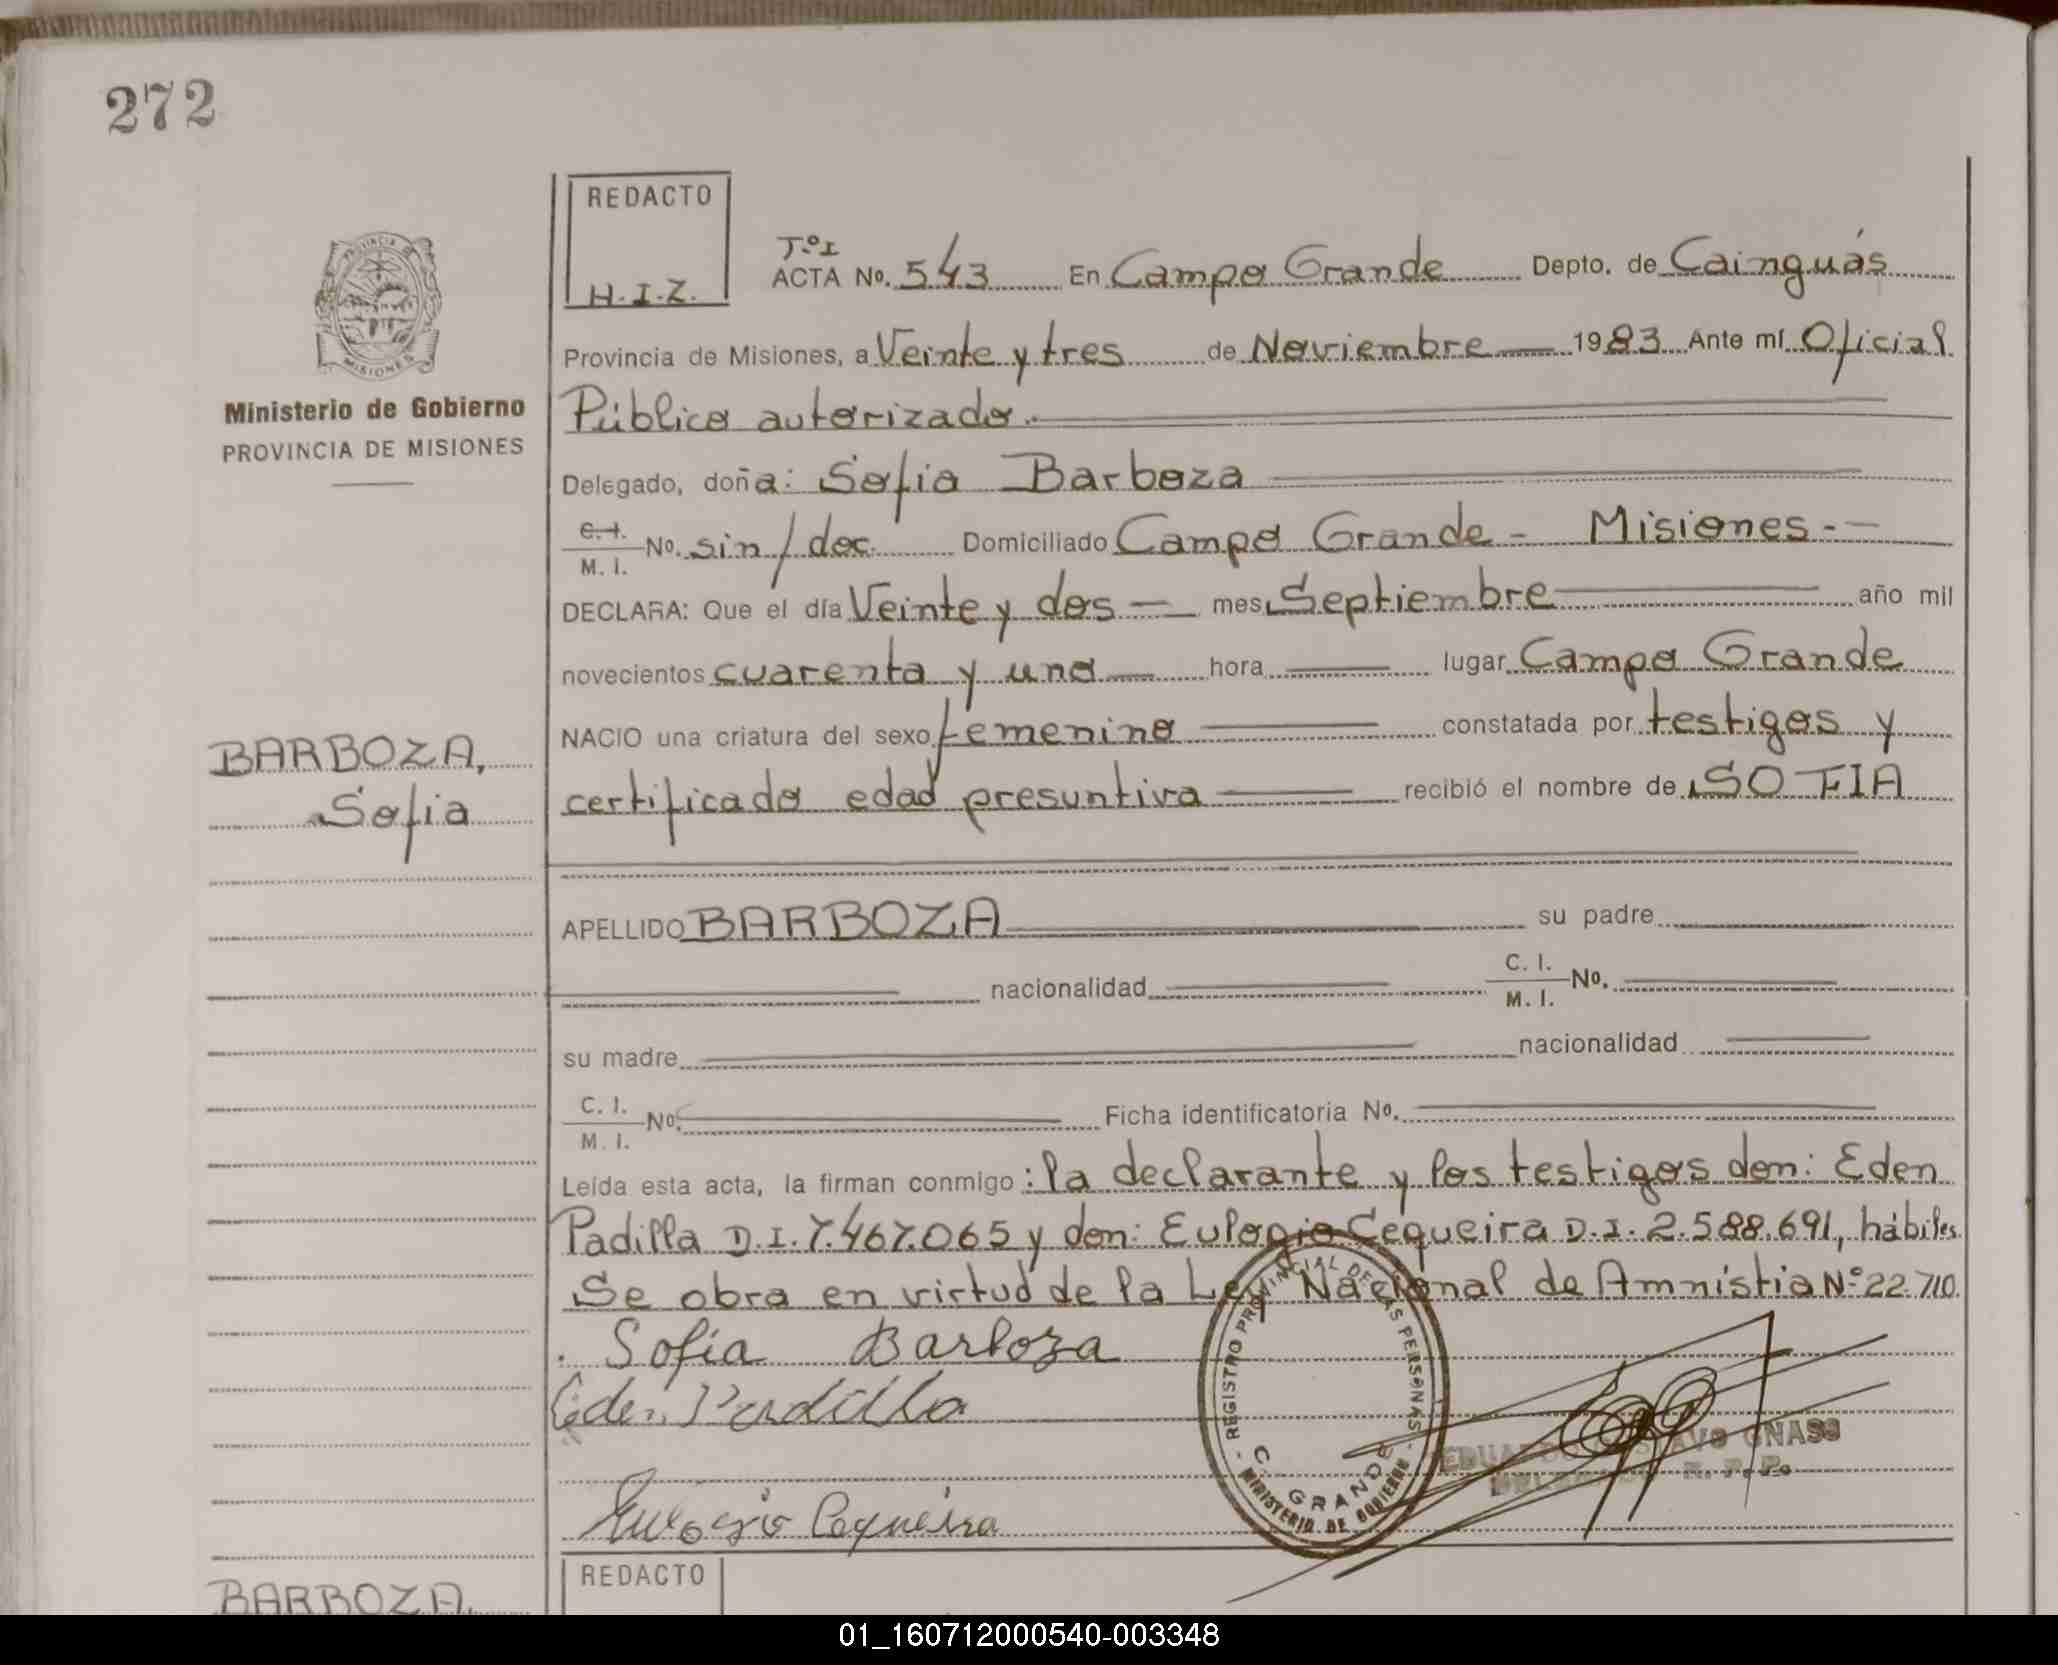 272
REDACTO
H.I.Z.
PROVINCIA DE
MISIONES
Ministerio de Gobierno
PROVINCIA DE MISIONES
BARBOZA,
Sofia
Tº I
ACTA Nº. 543 En Campo Grande Depto. de Cainguás
Provincia de Misiones, a Veinte y tres de Noviembre 1983 Ante mí Oficial
Público autorizado.
Delegado, doña: Sofia Barboza
C.I. M. I. Nº. sin/doc. Domiciliado Campo Grande - Misiones.-
DECLARA: Que el día Veinte y dos mes Septiembre año mil
novecientos cuarenta y uno hora lugar Campo Grande
NACIO una criatura del sexo femenino constatada por testigos y
certificado edad presuntiva recibió el nombre de SOFIA
APELLIDO BARBOZA su padre
nacionalidad C. I. M. I. Nº.
su madre nacionalidad
C. I. M. I. Nº. Ficha identificatoria Nº.
Leída esta acta, la firman conmigo: la declarante y los testigos don: Eden
Padilla D.I. 7.467.065 y don: Eulogio Cequeira D.I. 2.588.691, hábiles
Se obra en virtud de la Ley Nacional de Amnistia Nº 22.710.
Sofía Barboza
Eden Padilla
Eulogio Cequeira
- REGISTRO PROVINCIAL DE LAS PERSONAS -
C. GRANDE
MINISTERIO DE GOBIERNO
EDUARDO GUSTAVO GNASS
R. P. P.
REDACTO
BARBOZA,
01_160712000540-003348